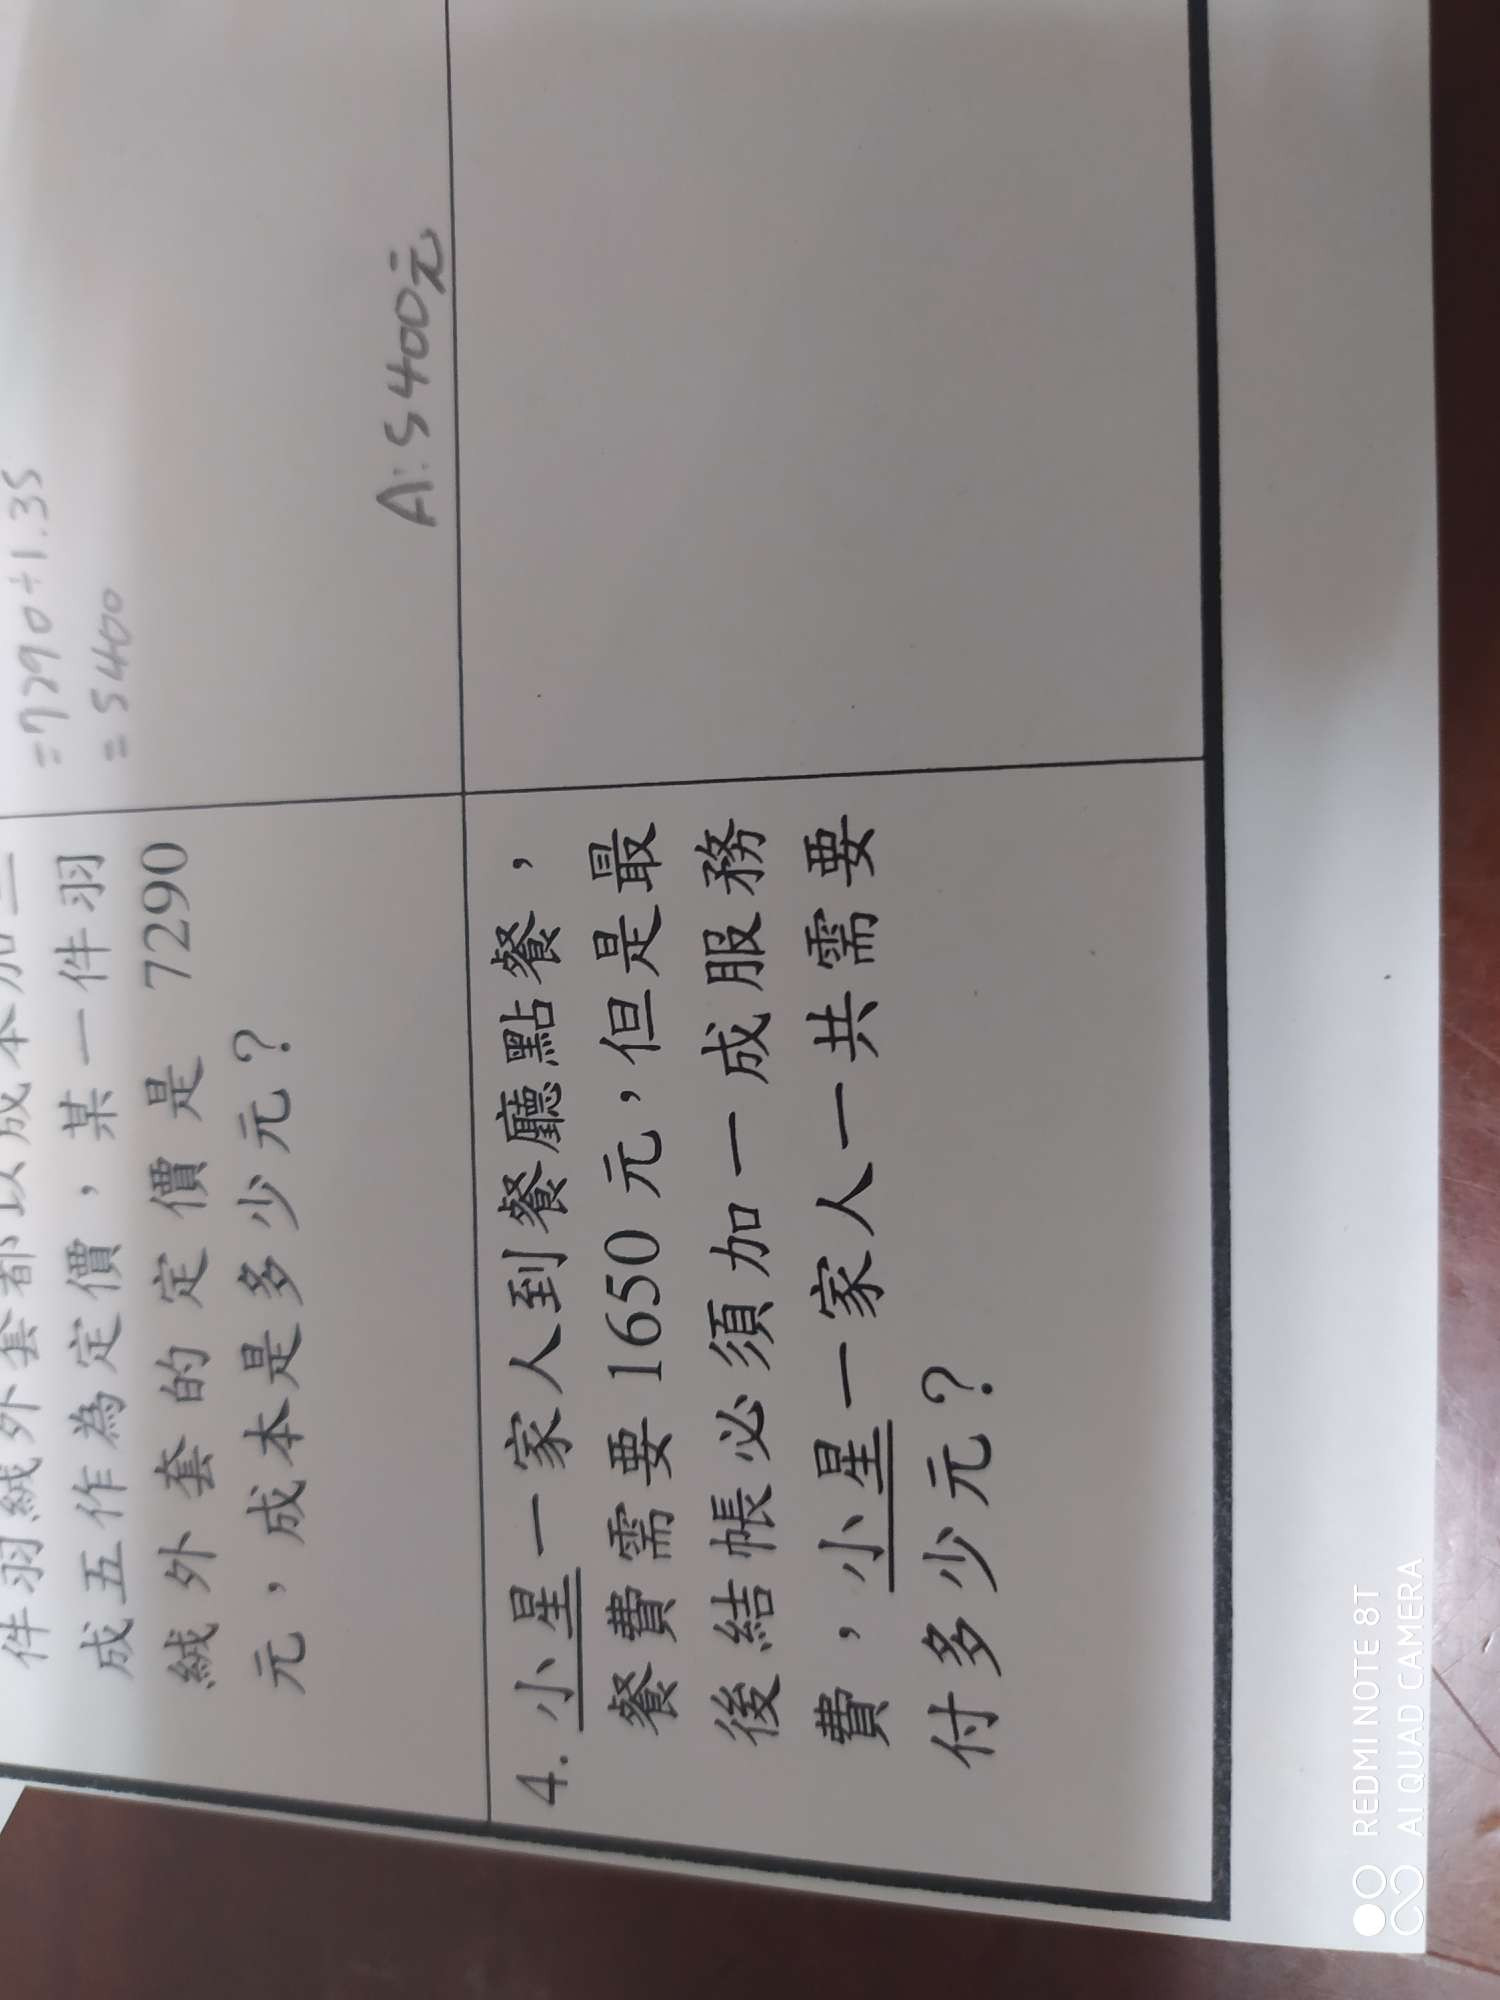 件羽絨外套都以成本加三
成五作為定價，某一件羽
絨外套的定價是 7290
元，成本是多少元？
=7290÷1.35
=5400
A:5400元
4. 小星一家人到餐廳點餐，
餐費需要 1650 元，但是最
後結帳必須加一成服務
費，小星一家人一共需要
付多少元？
REDMI NOTE 8T
AI QUAD CAMERA